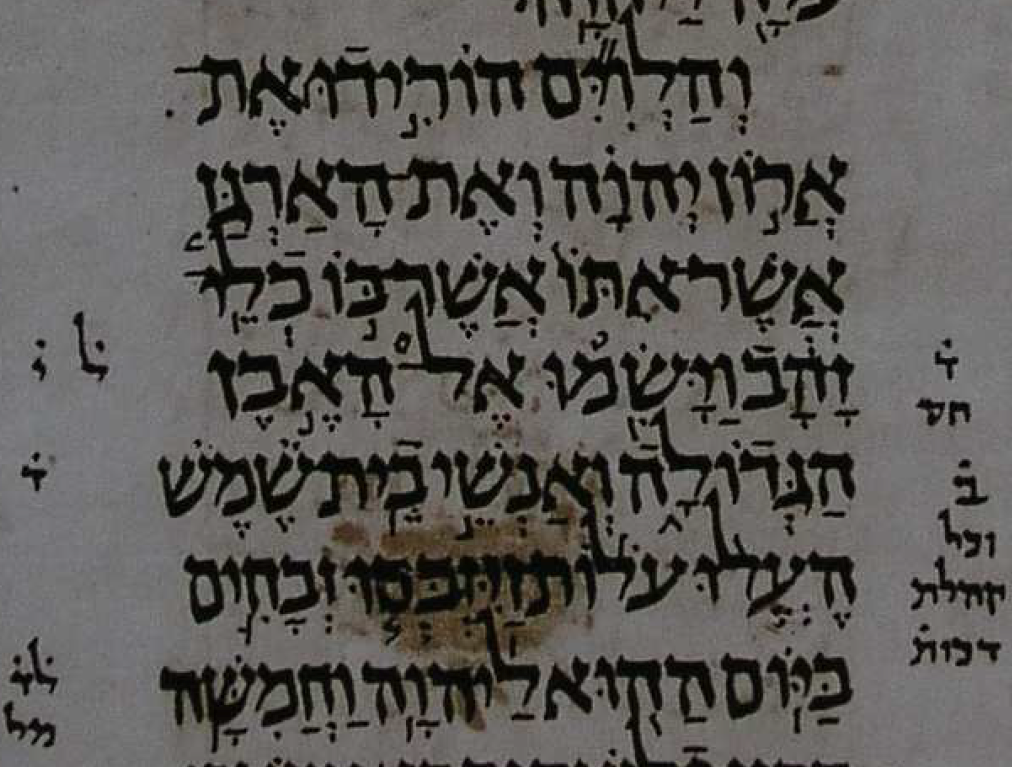 וְהַלְוִיִּם הוֹרִידוּ אֶת
אֲרוֹן יְהוָה וְאֶת הָאַרְגַּז
אֲשֶׁר אִתּוֹ אֲשֶׁר בּוֹ כְלֵי
זָהָב וַיָּשִׂמוּ אֶל הָאֶבֶן
הַגְּדוֹלָה וְאַנְשֵׁי בֵית שֶׁמֶשׁ
הֶעֱלוּ עֹלוֹת וַיִּזְבְּחוּ זְבָחִים
בַּיּוֹם הַהוּא לַיהוָה וַחֲמִשָּׁה
ד
חס
ב
וכל
קהלת
דכות
ל ו
ד
לד
מל